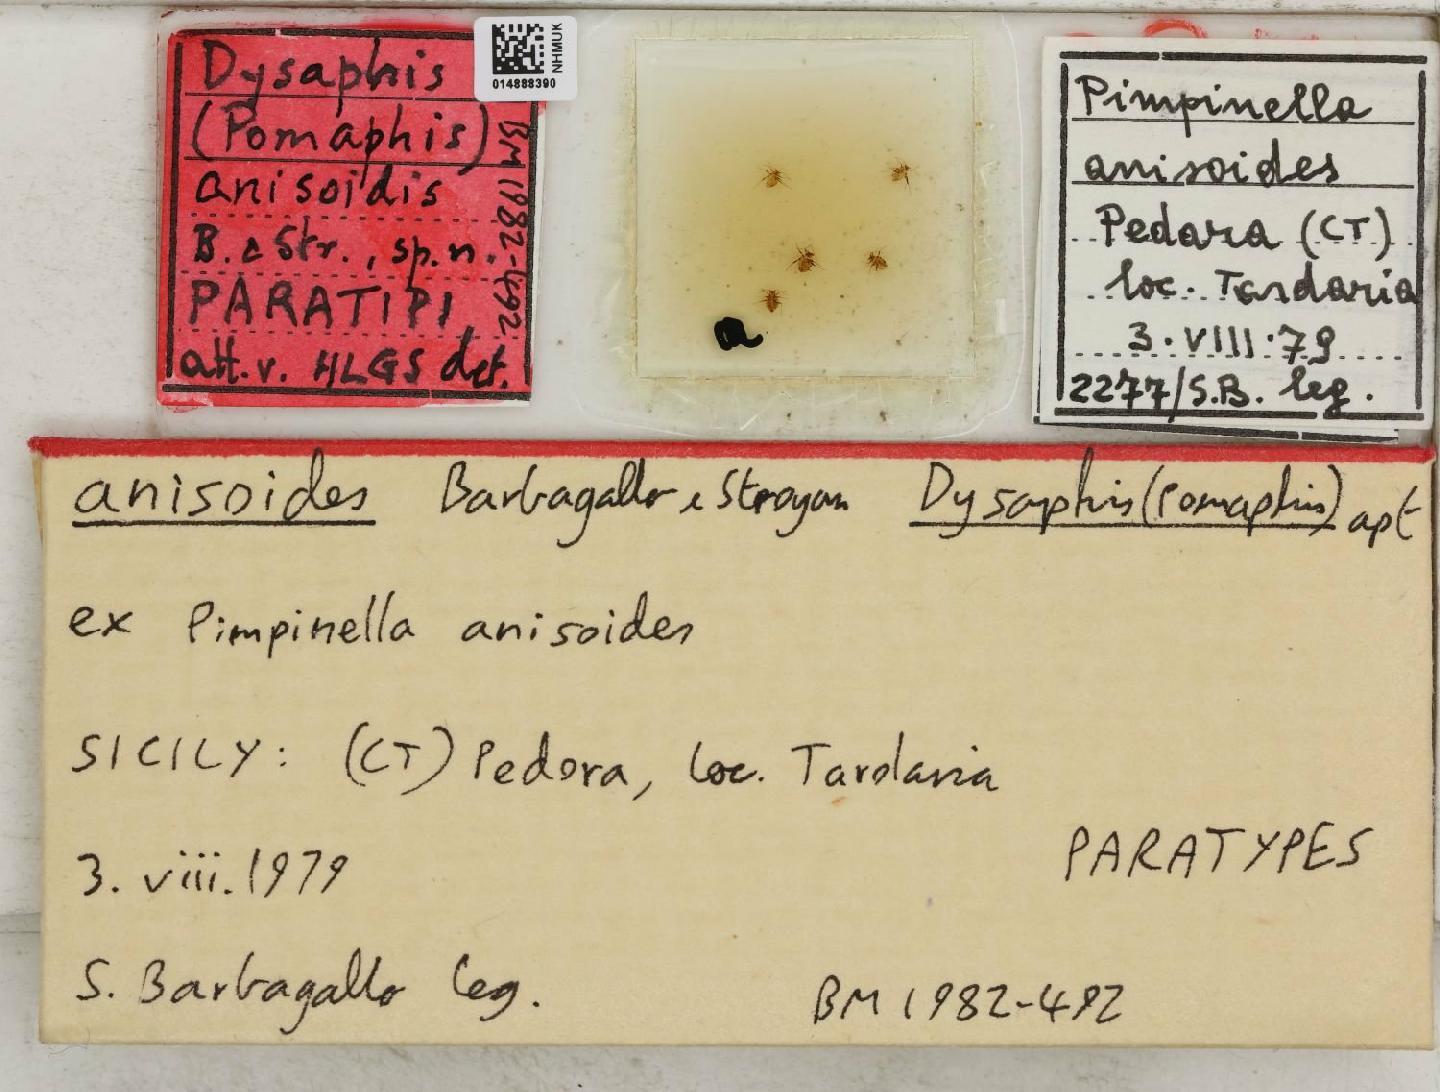 Dysaphis
(Pomaphis)
anisoidis
B. & Str., sp. n.
PARATIPI
att. v. HLGS det.
BM 1982-492
014888390
NHMUK
Pimpinella
anisoides
Pedara (CT)
loc. Tardaria
3.VIII.79
2277/S.B. leg.
anisoides Barbagallo & Stroyan Dysaphis (Pomaphis) apt
ex Pimpinella anisoides
SICILY: (CT) Pedora, loc. Tardaria
3. viii. 1979
PARATYPES
S. Barbagallo leg.
BM 1982-492